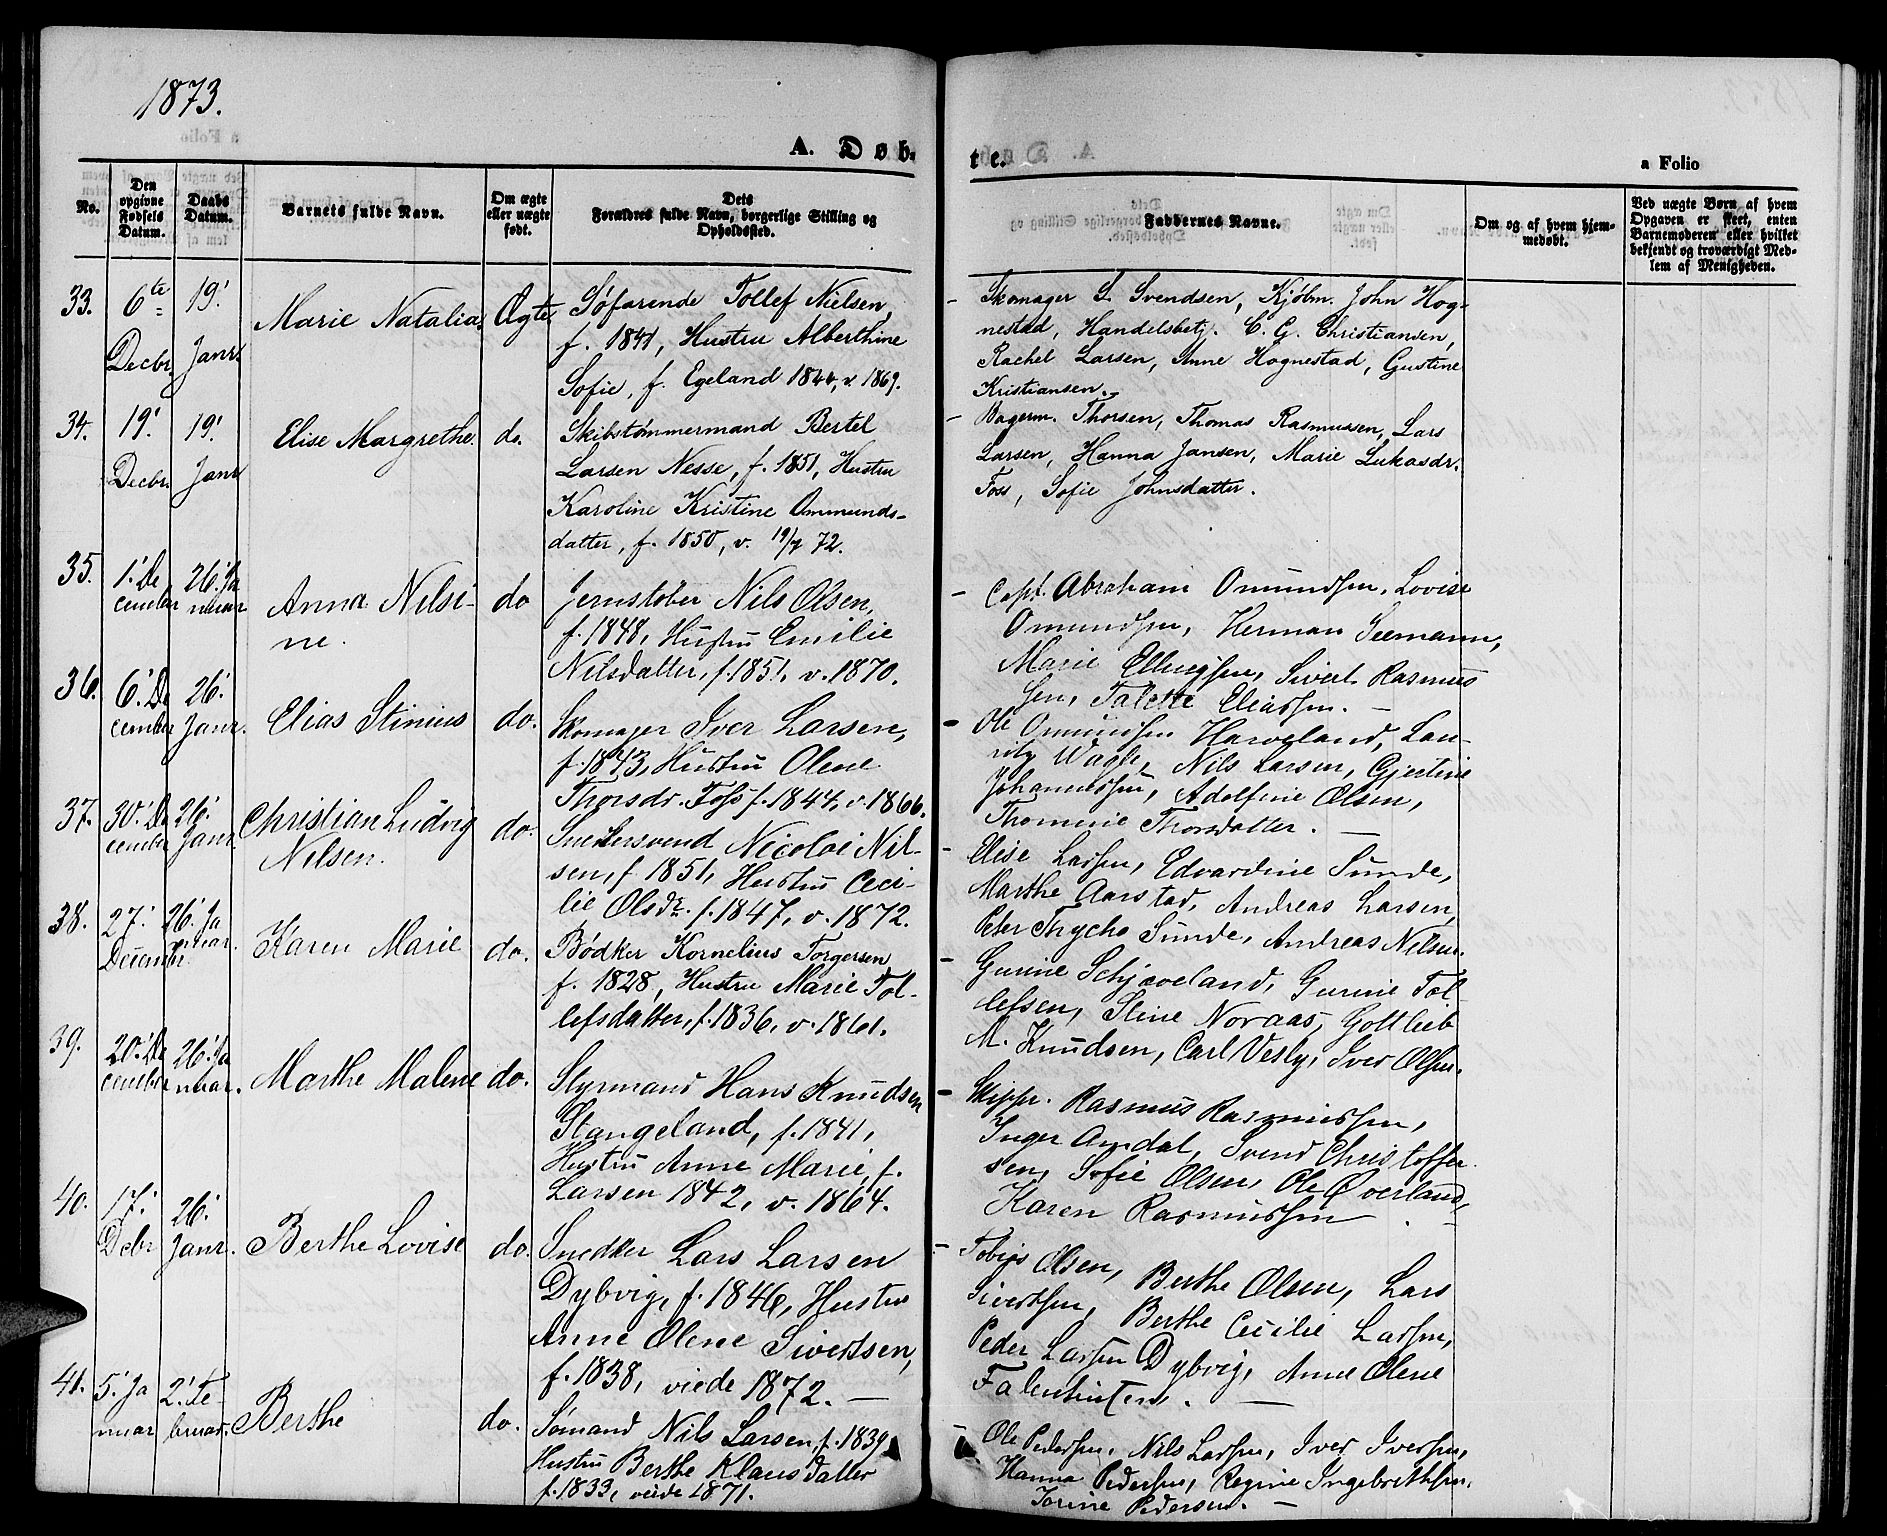 1873.
A. Døb-
te.
a Folio
No.
Den opgivne Fødsels Datum.
Daabs Datum.
Barnets fulde Navn.
Om ægte eller uægte født.
Dets Forældres fulde Navn, borgerlige Stilling og Opholdssted.
Faddernes Navne.
Om og af hvem hjemmedøbt.
Ved uægte Børn af hvem Opgaven er skeet, enten Barnemoderen eller hvilket bekjendt og troværdigt Medlem af Menigheden.
33.
6te Decbr.
19' Janr.
Marie Natalia.
Ægte
Søfarende Tollef Nielsen,
f. 1841, Hustru Alberthine
Sofie, f. Egeland 1844, v. 1869.
- Skomager S. Svendsen, Kjøbm. John Hog-
nestad, Handelsbetj. C. G. Christiansen,
Rachel Larsen, Anne Hognestad, Gustine
Kristiansen.
34.
19' Decbr.
19' Janr
Elise Margrethe.
do.
Skibstømmermand Bertel
Larsen Nesse, f. 1851, Hustru
Karoline Kristine Ommunds-
datter, f. 1850, v. 19/7 72.
- Bagerm. Thorsen, Thomas Rasmussen, Lars
Larsen, Hanna Jansen, Marie Lukasdr.
Foss, Sofie Johnsdatter.
35.
1' De
cember
26' Ja
nuar
Anna Nilsi-
ne.
do
Jernstøber Nils Olsen,
f. 1848, Hustru Emilie
Nilsdatter, f. 1851, v. 1870.
- Capt. Abraham Omundsen, Lovise
Omundsen, Herman Seemann,
Marie Ellingsen, Sivert Rasmus
sen, Talette Eliassen. -
36.
6' De
cember
26' Janr.
Elias Stinius
do.
Skomager Iver Larsen,
f. 1843, Hustru Olene
Thorsdr. Foss f. 1844, v. 1866.
- Ole Omundsen Harveland, Lau-
ritz Wagle, Nils Larsen, Gjertine
Johannessen, Adolfine Olsen,
Thomine Thorsdatter. -
37.
30' De
cember
26' Janr.
Christian Ludvig
Nilsen.
do.
Snedkersvend Nicolai Nil-
sen, f 1851, Hustru Ceci-
lie Olsdr. f. 1847, v. 1872.
- Elise Larsen, Edvardine Sunde,
Marthe Aarstad, Andreas Larsen,
Peter Thycho Sunde, Andreas Nilsen.
38.
27' December
26' Ja
nuar.
Karen Marie
do.
Bødker Kornelius Torgersen
f. 1828, Hustru Marie Tol-
lefsdatter, f. 1836, v. 1861.
- Gurine Schjæveland, Gurine Tol
lefsen, Stine Noraas, Gottlieb
M. Knudsen, Carl Vesly, Iver Olsen.
39.
20' De
cember
26' Ja
nuar.
Marthe Malene
do.
Styrmand Hans Knudsen
Stangeland, f. 1841,
Hustru Anne Marie, f.
Larsen 1842, v. 1864.
- Skippr. Rasmus Rasmussen,
Inger Amdal, Svend Christoffer
sen, Sofie Olsen, Ole Øverland,
Karen Rasmussen -
40.
17' Debr
26' Janr.
Berthe Lovise
do.
Snedker Lars Larsen
Dybvig, f. 1846, Hustru
Anne Olene Sivertsen,
f. 1838, viede 1872. -
- Tobias Olsen, Berthe Olsen, Lars
Sivertsen, Berthe Cecilie Larsen,
Peder Larsen Dybvig, Anne Olene
Falentinsen. -
41.
5' Ja
nuar
2' Fe-
bruar.
Berthe
do.
Sømand Nils Larsen, f. 1839,
Hustru Berthe Klausdatter
f. 1833, viede 1871.
- Ole Pedersen, Nils Larsen, Iver Iversen,
Hanna Pedersen, Regine Ingebrethsen,
Jorine Pedersen. -